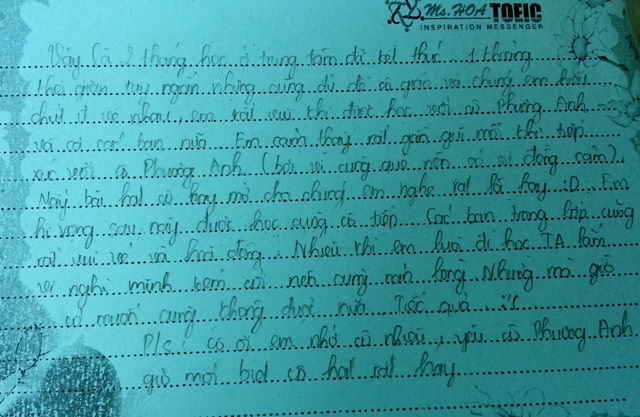 Ms. HOA TOEIC
INSPIRATION MESSENGER
Vậy là 2 tháng học ở trung tâm đã kết thúc. 1 khoảng
thời gian tuy ngắn nhưng cũng đủ để cô giáo và chúng em hiểu
chút ít về nhau, em rất vui khi được học với cô Phương Anh
và cả các bạn nữa. Em cảm thấy rất gần gũi mỗi khi tiếp
xúc với cô Phương Anh (bởi vì cùng quê nên có sự đồng cảm).
Mấy bài hát cô hay mở cho chúng em nghe rất là hay :D. Em
hi vọng sau này được học cùng cô tiếp. Các bạn trong lớp cũng
rất vui vẻ và hoà đồng. Nhiều khi em lười đi học TA lắm
vì nghĩ mình kém cỏi nên cũng nản lòng. Nhưng mà giờ
có muốn cũng không được nữa. Tiếc quá :'(
P/s: cô ơi em nhớ cô nhiều, yêu cô Phương Anh
giờ mới biết cô hát rất hay